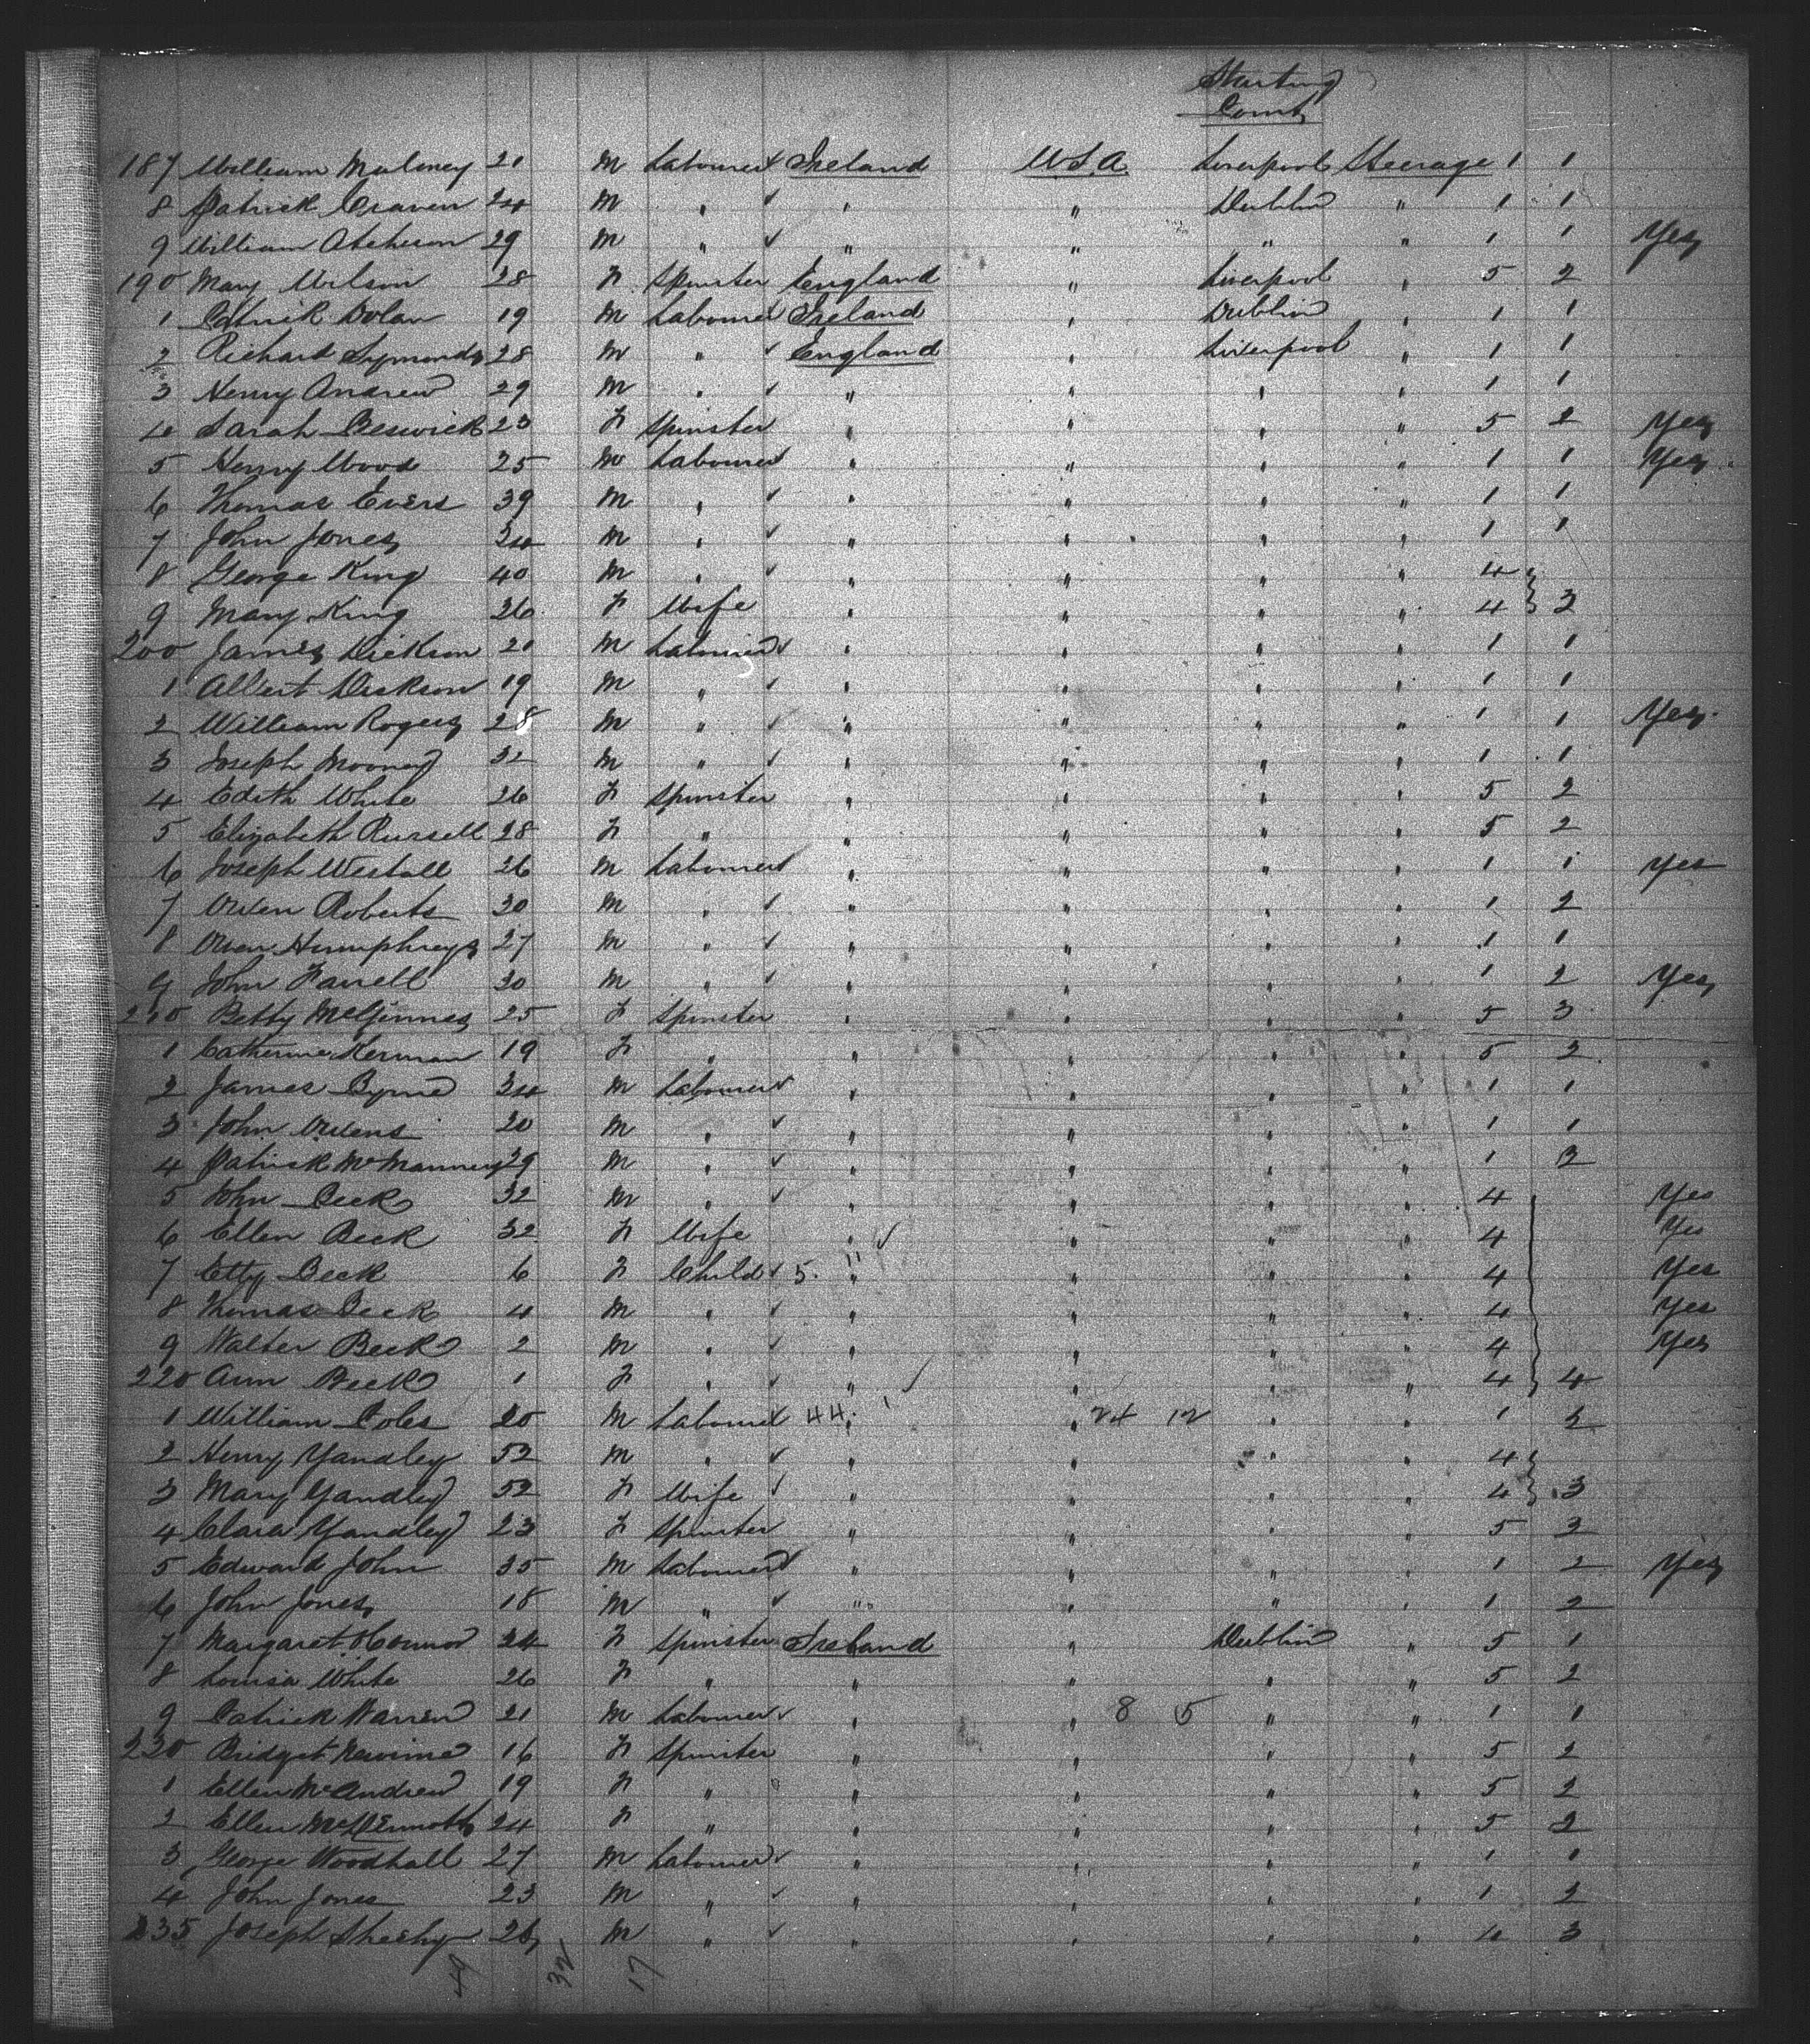 Starting
Point
187 William Maloney 21 M Labourer Ireland U.S.A. Liverpool Steerage 1 1
8 Patrick Craven 24 M " ✓ " " Dublin " 1 1
9 William Atcheson 29 M " ✓ " " " " 1 1 Yes
190 Mary Wilson 28 F Spinster England " Liverpool " 5 2
1 Patrick Dolan 19 M Labourer Ireland " Dublin " 1 1
2 Richard Symonds 28 M " ✓ England " Liverpool " 1 1
3 Henry Andrew 29 M " ✓ " " " " 1 1
4 Sarah Beswick 23 F Spinster " " " " 5 2 Yes
5 Henry Wood 25 M Labourer " " " " 1 1 Yes
6 Thomas Evers 39 M " ✓ " " " " 1 1
7 John Jones 34 M " ✓ " " " " 1 1
8 George King 40 M " ✓ " " " " 4
9 Mary King 36 F Wife " " " " 4 3
200 James Dickson 21 M Labourer ✓ " " " " 1 1
1 Albert Dickson 19 M " ✓ " " " " 1 1
2 William Rogers 28 M " ✓ " " " " 1 1 Yes
3 Joseph Mooney 32 M " ✓ " " " " 1 1
4 Edith White 26 F Spinster " " " " 5 2
5 Elizabeth Russell 28 F " " " " " 5 2
6 Joseph Westall 26 M Labourer " " " " 1 1 Yes
7 Owen Roberts 30 M " ✓ " " " " 1 2
8 Owen Humphreys 27 M " ✓ " " " " 1 1
9 John Farrell 30 M " ✓ " " " " 1 2 Yes
210 Betty McGinnes 25 F Spinster " " " " 5 3
1 Catherine Kernan 19 F " " " " " 5 2
2 James Byrne 34 M Labourer ✓ " " " " 1 1
3 John Owens 20 M " ✓ " " " " 1 1
4 Patrick McManney 29 M " ✓ " " " " 1 2
5 John Beck 32 M " ✓ " " " " 4 Yes
6 Ellen Beck 32 F Wife " ✓ " " " 4 Yes
7 Etty Beck 6 F Child ✓ 5 11 " " " " 4 Yes
8 Thomas Beck 4 M " ✓ " " " " 4 Yes
9 Walter Beck 2 M " ✓ " " " " 4 Yes
220 Ann Beck 1 F " ✓ " ✓ " " " 4 4
1 William Coles 20 M Labourer 44 " " 24 12 " " 1 2
2 Henry Yandley 52 M " ✓ " " " " 4
3 Mary Yandley 52 F Wife ✓ " " " " 4 3
4 Clara Yandley 23 F Spinster " " " " 5 3
5 Edward John 35 M Labourer " " " " 1 2 Yes
6 John Jones 18 M " ✓ " " " " 1 2
7 Margaret OConnor 24 F Spinster Ireland " Dublin " 5 1
8 Louisa White 26 F " " " " " 5 2
9 Patrick Warren 21 M Labourer ✓ " " 8 5 " " 1 1
230 Bridget 16 F Spinster " " " " 5 2
1 Ellen McAndrew 19 F " " " " " 5 2
2 Ellen McDermott 24 F " " " " " 5 2
3 George Woodhall 27 M Labourer ✓ " " " " 1 1
4 John Jones 23 M " ✓ " " " " 1 2
235 Joseph Sheehy 26 M " ✓ " " " " 4 3
49 32 17